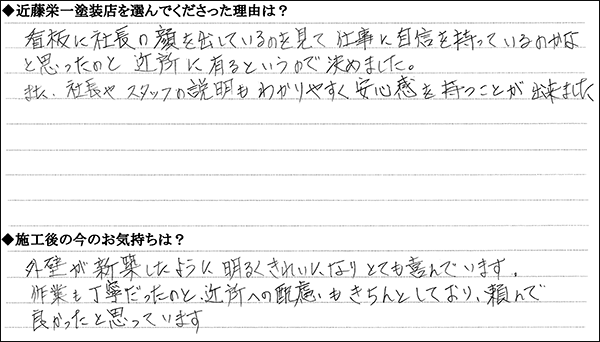 ◆近藤栄一塗装店を選んでくださった理由は？
看板に社長の顔を出しているのを見て仕事に自信を持っているのかな
と思ったのと近所に有るというので決めました。
また、社長やスタッフの説明もわかりやすく安心感を持つことが出来ました
◆施工後の今のお気持ちは？
外壁が新築したように明るくきれいになりとても喜んでいます。
作業も丁寧だったのと、近所への配慮もきちんとしており、頼んで
良かったと思っています